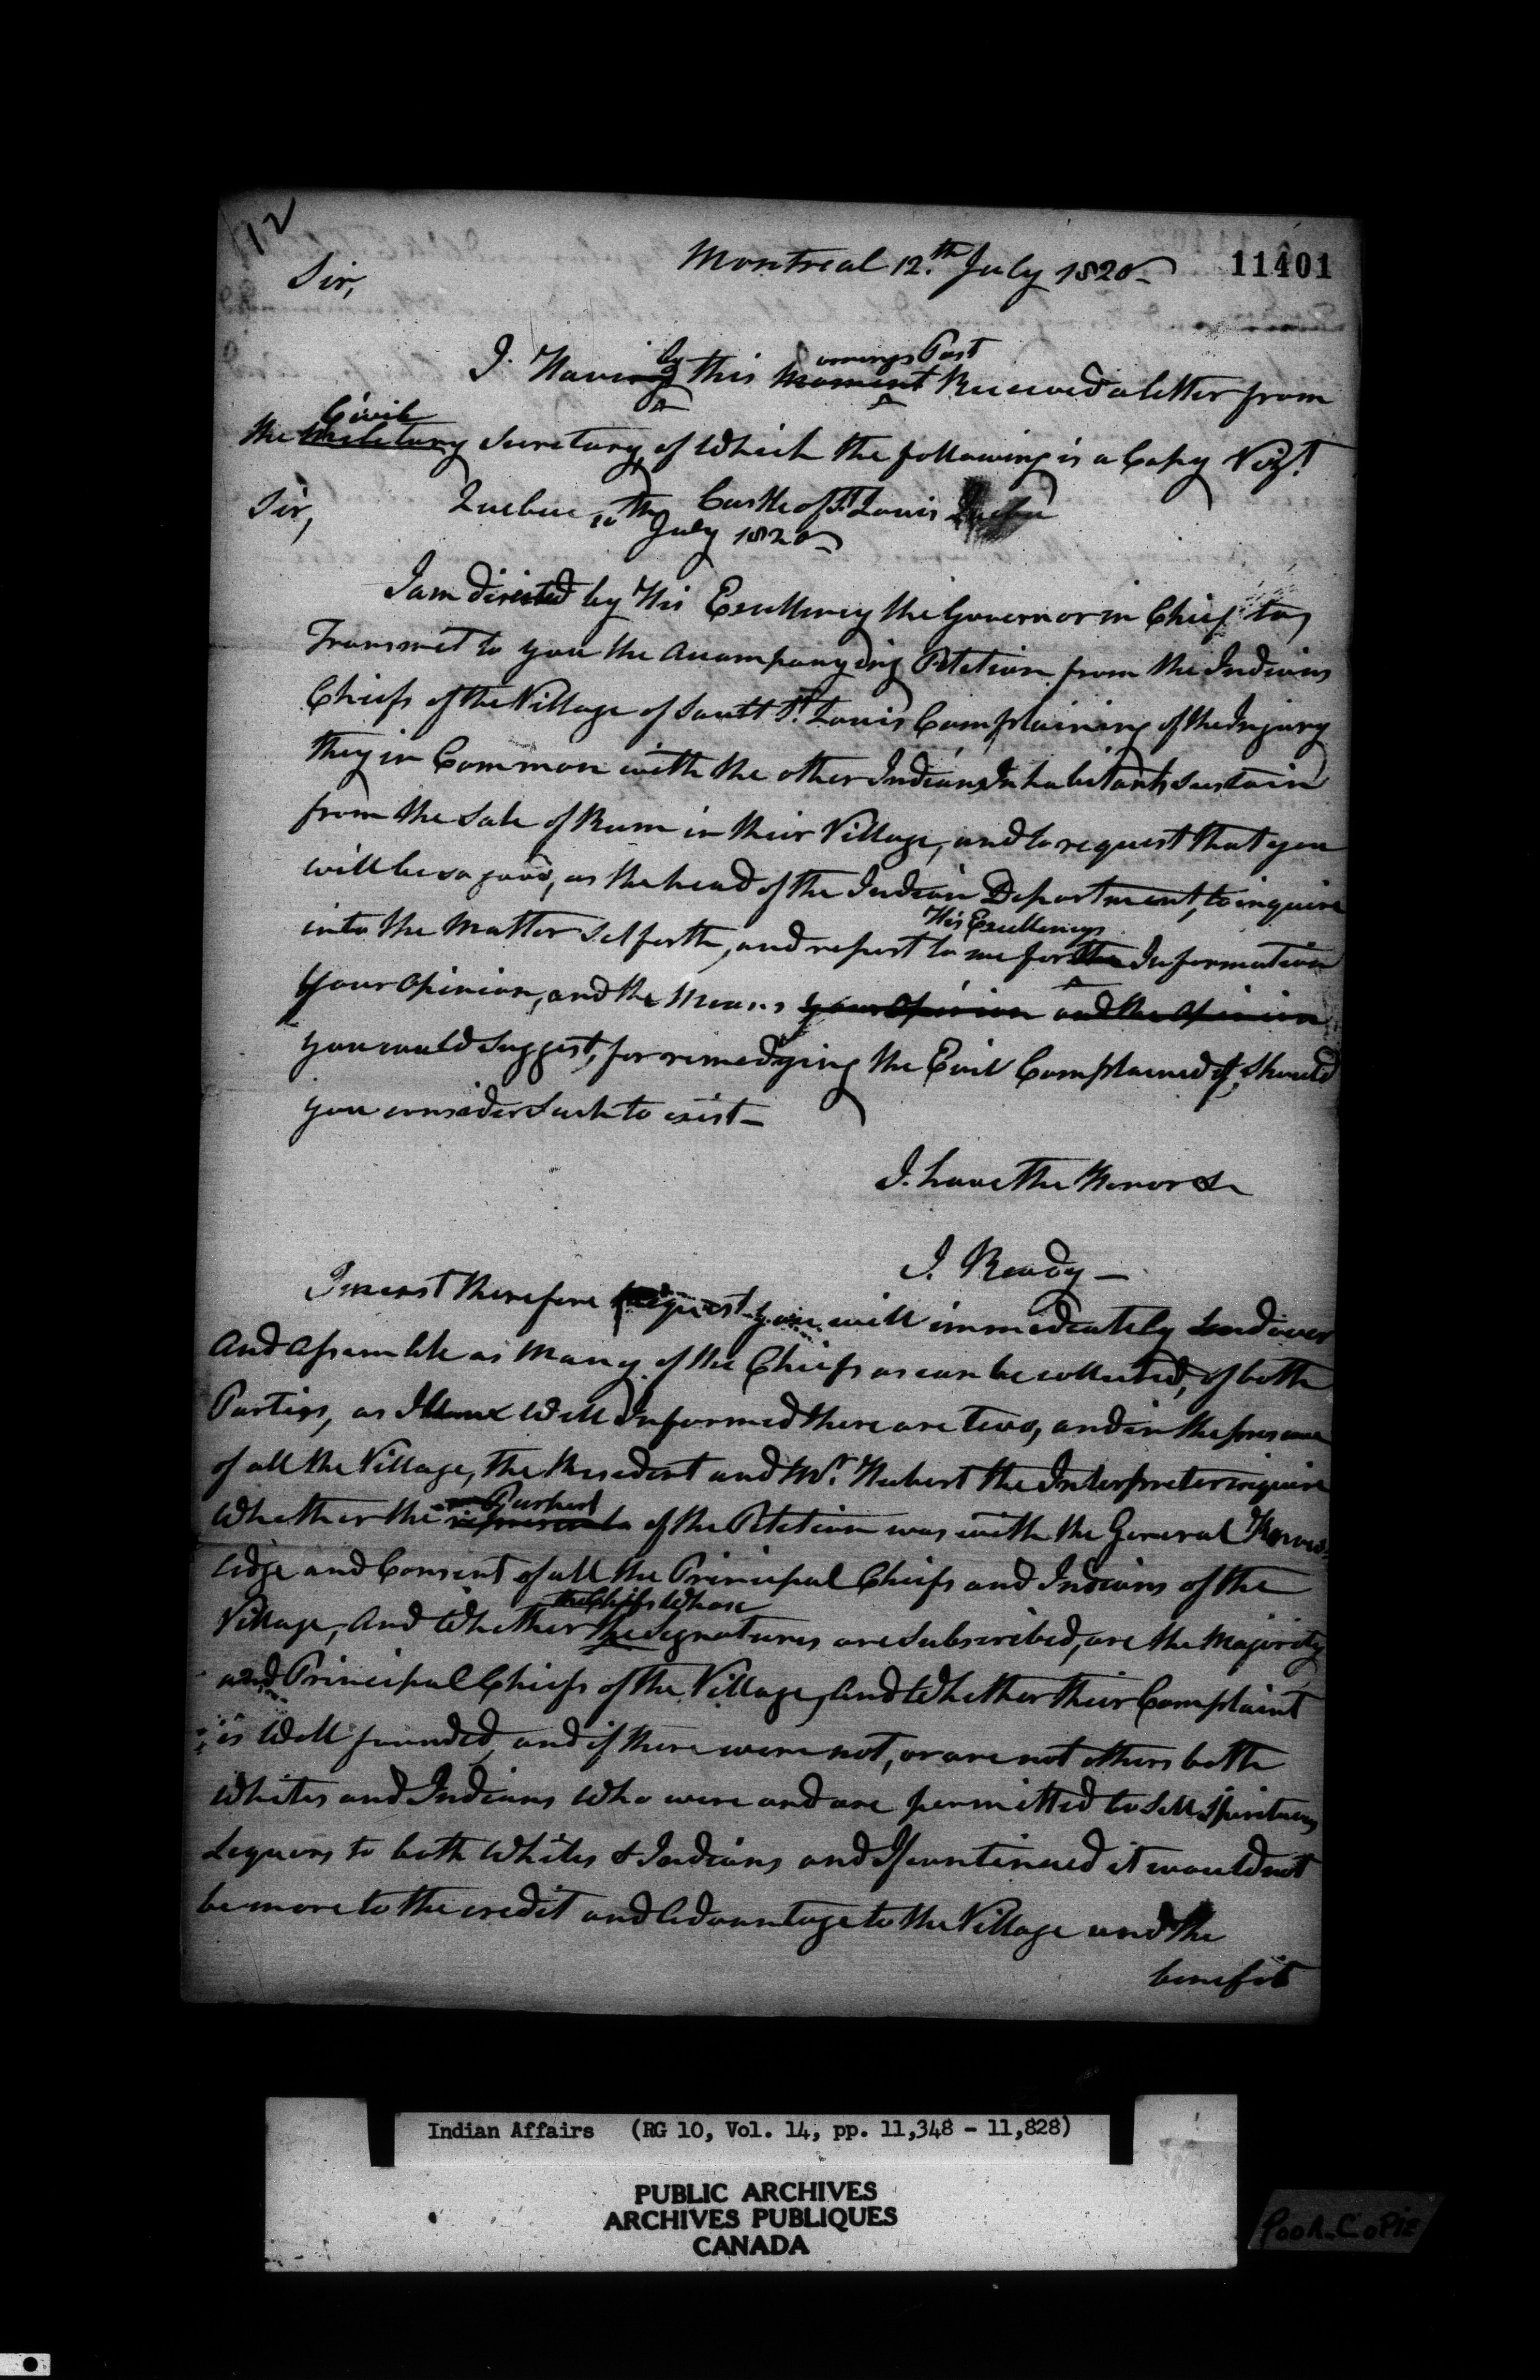 12
Montreal 12.th July 1820
11401
Sir,
by ornings Post
I Having this Moment Received a letter from
Civil
the Military Secretary, of Which the following is a Copy Vizt
Sir, Quebec Castle of St Louis
10th July 1820
I am directed by His Excellency the Governor in Chief to
Transmit to you the Accompanying Petition from the Indians
Chiefs of the Village of Sault St Louis Complaining of the Injury
they in Common with the other Indians Inhabitants sustain
from the Sale of Rum in their Village, and to request that you
will be so good, as the head of the Indian Department, to inquire
His Excellencys
into the Matter Set forth, and report to me for the Information
Your Opinion, and the Means your Opinion and the Opinion
you would Suggest, for remedying the Evil Complained of, Should
you consider Such to exist
I have the Honor &
J. Ready
I must therefore request you will immediately Send over
And Assemble as Many of the Chiefs as can be collected, of both
Parties, as I Well Informed there are Two, and in the presence
of all the Village, the Resident and Mr. Hubert the Interpreter inquire
Purport
Whether the of the Petition was with the General Know
ledge and Consent of all the Principal Chiefs and Indians of the
the Chiefs Whose
Village, And Whether the Signatures are Subscribed, are the Majority
and Principal Chiefs of the Village, And Whether their Complaint
is Well founded, and if there were not, or are not others both
Whites and Indians Who were and are permitted to Sell Spirituous
Liquors to both Whites & Indians and If continued it would not
be more to the credit and Advantage to the Village and the
benefit
Indian Affairs (RG 10, Vol. 14, pp. 11,348 - 11,828)
PUBLIC ARCHIVES
ARCHIVES PUBLIQUES
CANADA
POOR COPIE